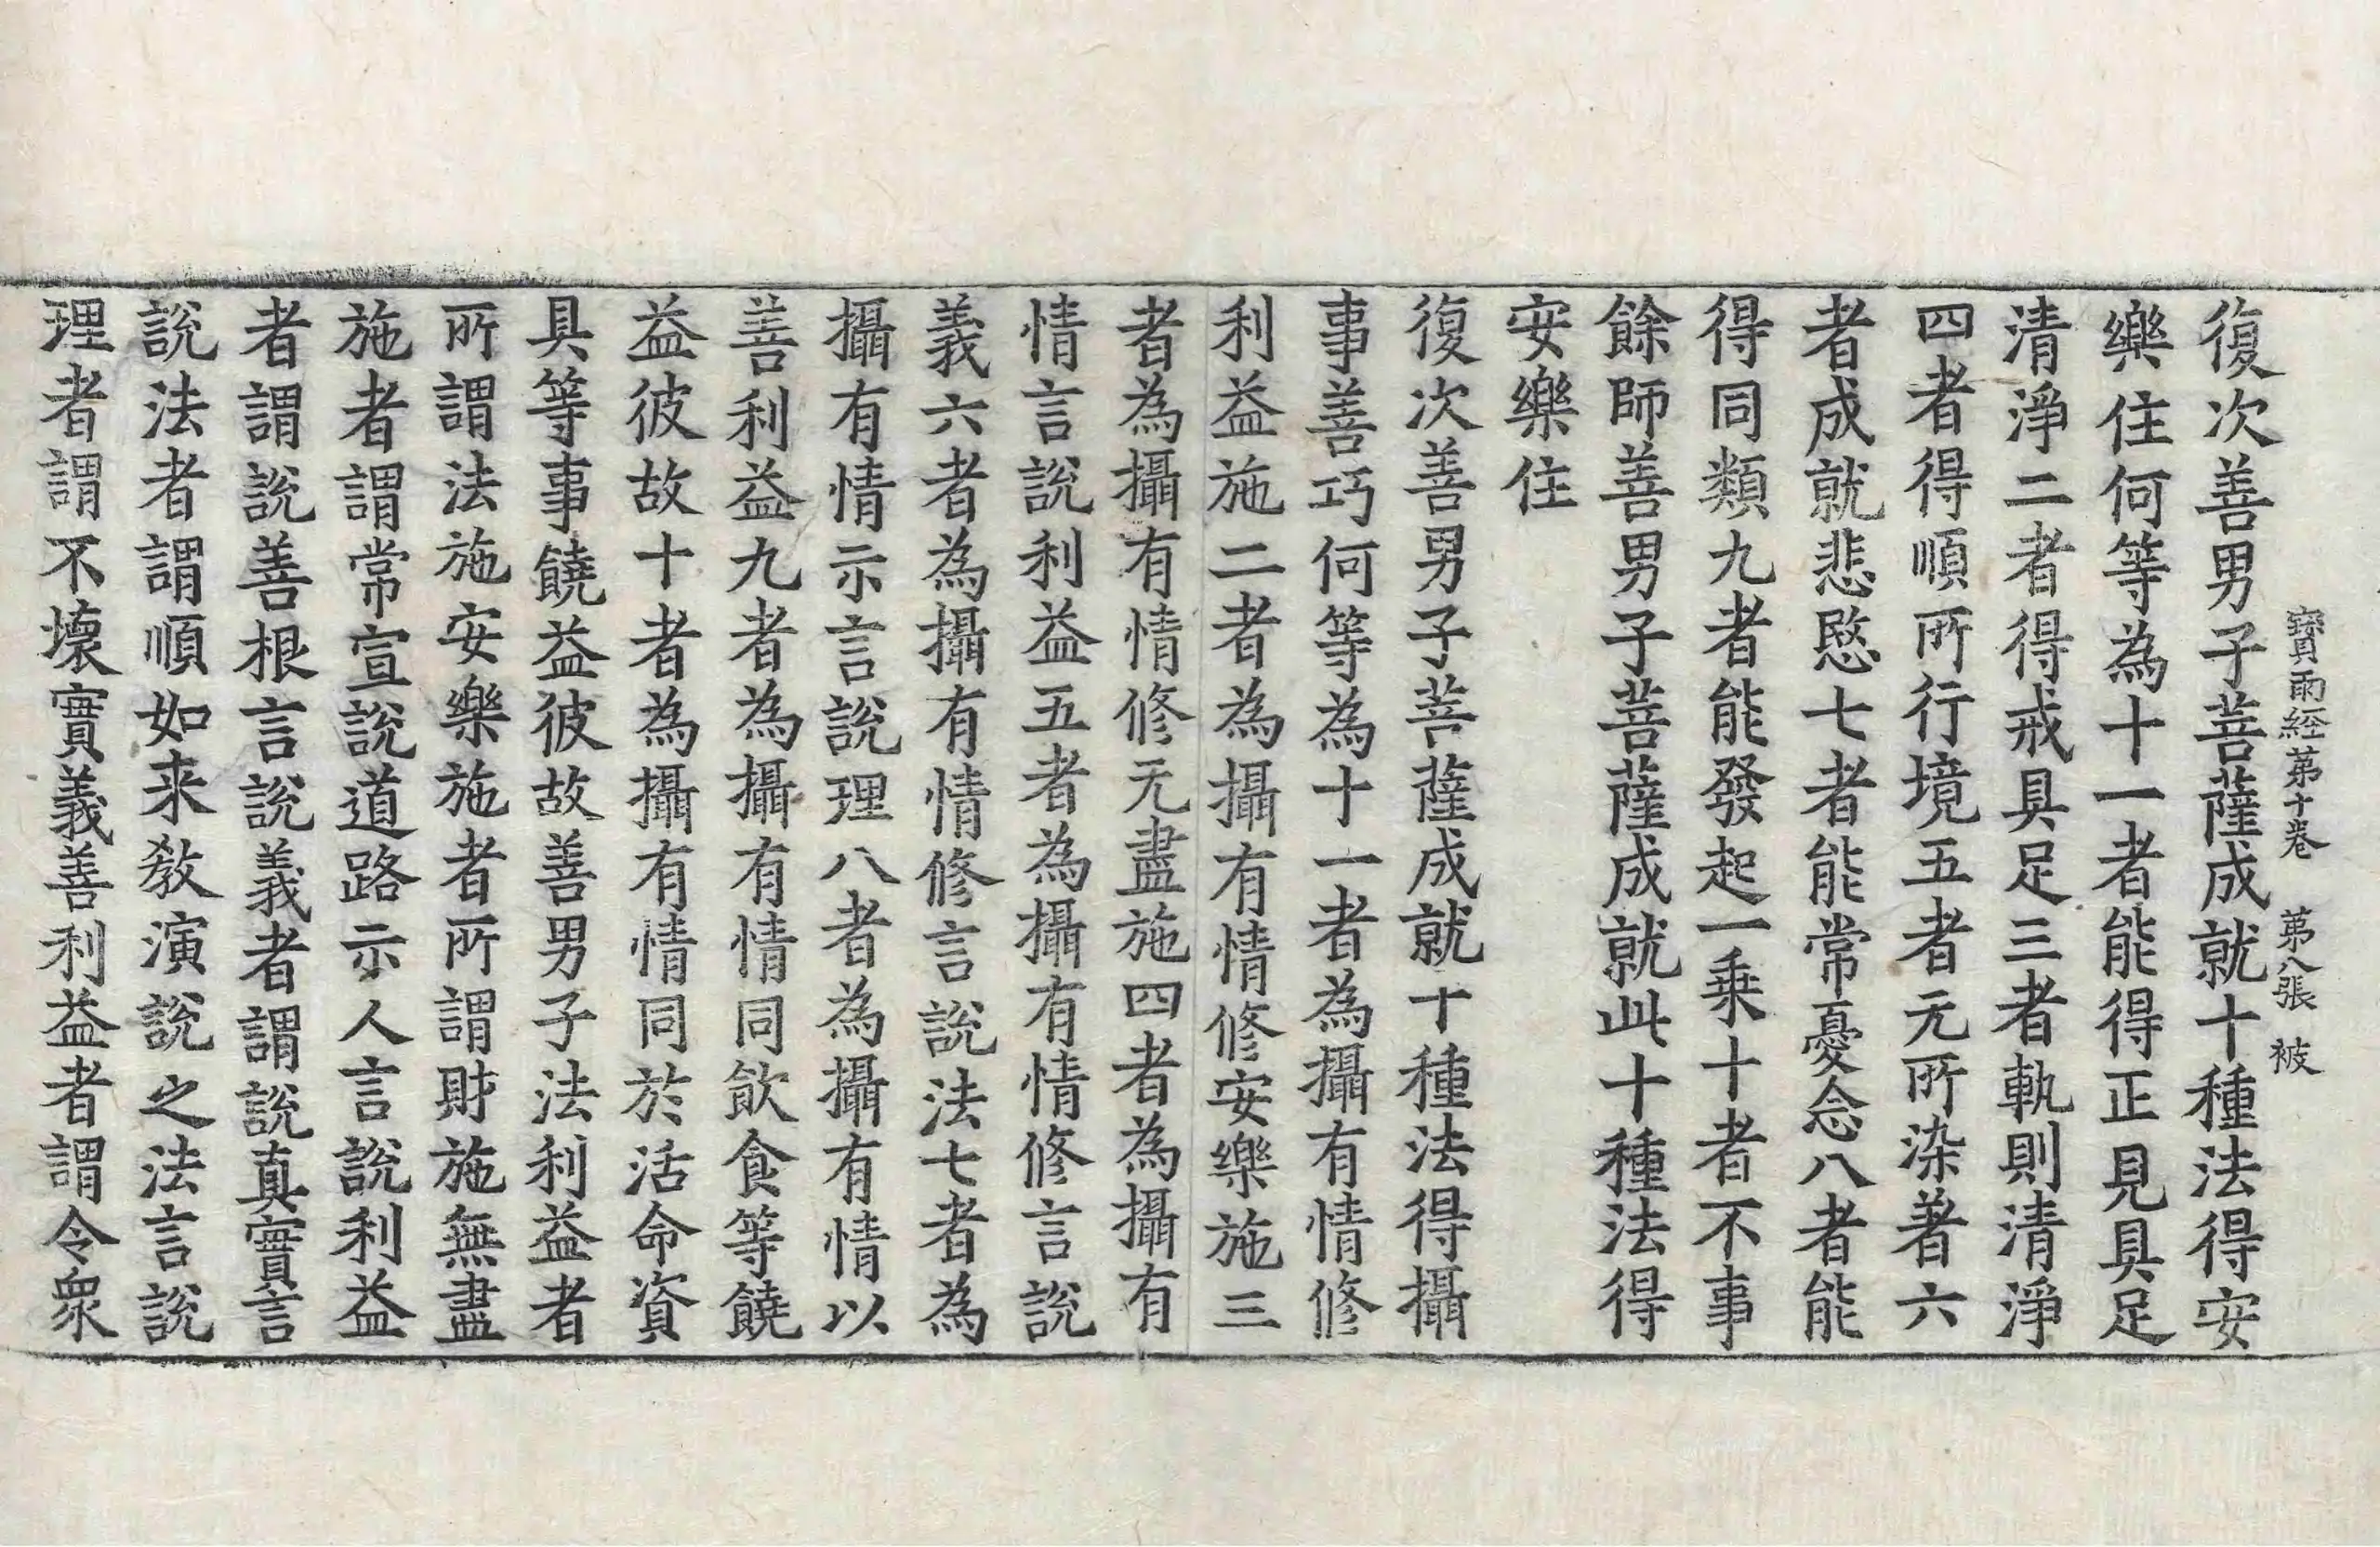 寶雨經第十卷 第八張 被
復次善男子菩薩成就十種法得安
樂住何等為十一者能得正見具足
清淨二者得戒具足三者軌則清淨
四者得順所行境五者无所染著六
者成就悲愍七者能常憂念八者能
得同類九者能發起一乗十者不事
餘師善男子菩薩成就此十種法得
安樂住
復次善男子菩薩成就十種法得攝
事善巧何等為十一者為攝有情修
利益施二者為攝有情修安樂施三
者為攝有情修无盡施四者為攝有
情言說利益五者為攝有情修言說
義六者為攝有情修言說法七者為
攝有情示言說理八者為攝有情以
善利益九者為攝有情同飲食等饒
益彼故十者為攝有情同於活命資
具等事饒益彼故善男子法利益者
所謂法施安樂施者所謂財施無盡
施者謂常宣說道路示人言說利益
者謂說善根言說義者謂說真實言
說法者謂順如来教演說之法言說
理者謂不壞實義善利益者謂令衆